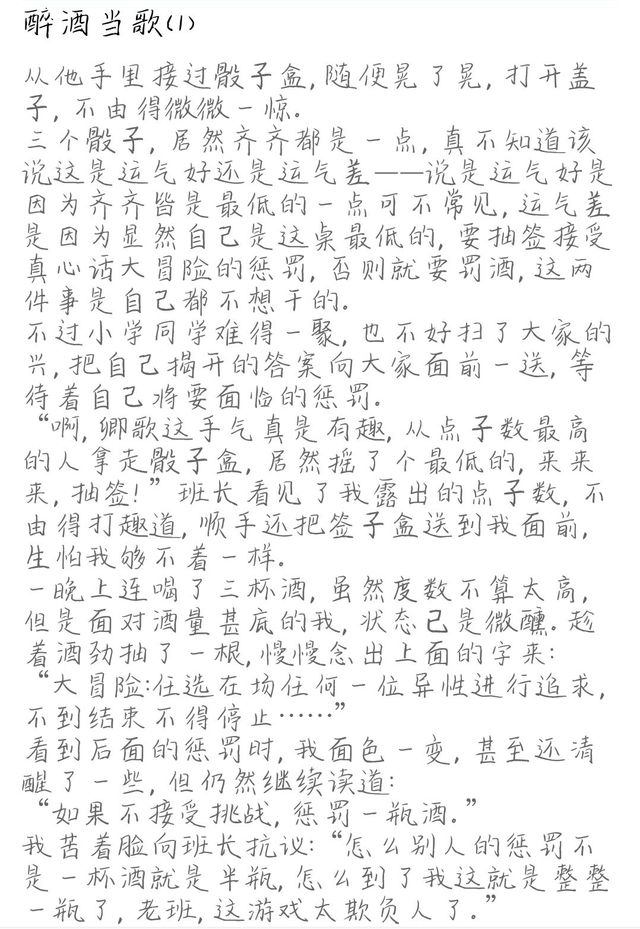 醉酒当歌(1)
从他手里接过骰子盒,随便晃了晃,打开盖
子,不由得微微一惊。
三个骰子,居然齐齐都是一点,真不知道该
说这是运气好还是运气差——说是运气好是
因为齐齐皆是最低的一点可不常见,运气差
是因为显然自己是这桌最低的,要抽签接受
真心话大冒险的惩罚,否则就要罚酒,这两
件事是自己都不想干的。
不过小学同学难得一聚,也不好扫了大家的
兴,把自己揭开的答案向大家面前一送,等
待着自己将要面临的惩罚。
“啊,卿歌这手气真是有趣,从点子数最高
的人拿走骰子盒,居然摇了个最低的,来来
来,抽签!”班长看见了我露出的点子数,不
由得打趣道,顺手还把签子盒送到我面前,
生怕我够不着一样。
一晚上连喝了三杯酒,虽然度数不算太高,
但是面对酒量甚底的我,状态己是微醺。趁
着酒劲抽了一根,慢慢念出上面的字来:
“大冒险:任选在场任何一位异性进行追求,
不到结束不得停止……”
看到后面的惩罚时,我面色一变,甚至还清
醒了一些,但仍然继续读道:
“如果不接受挑战,惩罚一瓶酒。”
我苦着脸向班长抗议:“怎么别人的惩罚不
是一杯酒就是半瓶,怎么到了我这就是整整
一瓶了,老班,这游戏太欺负人了。”